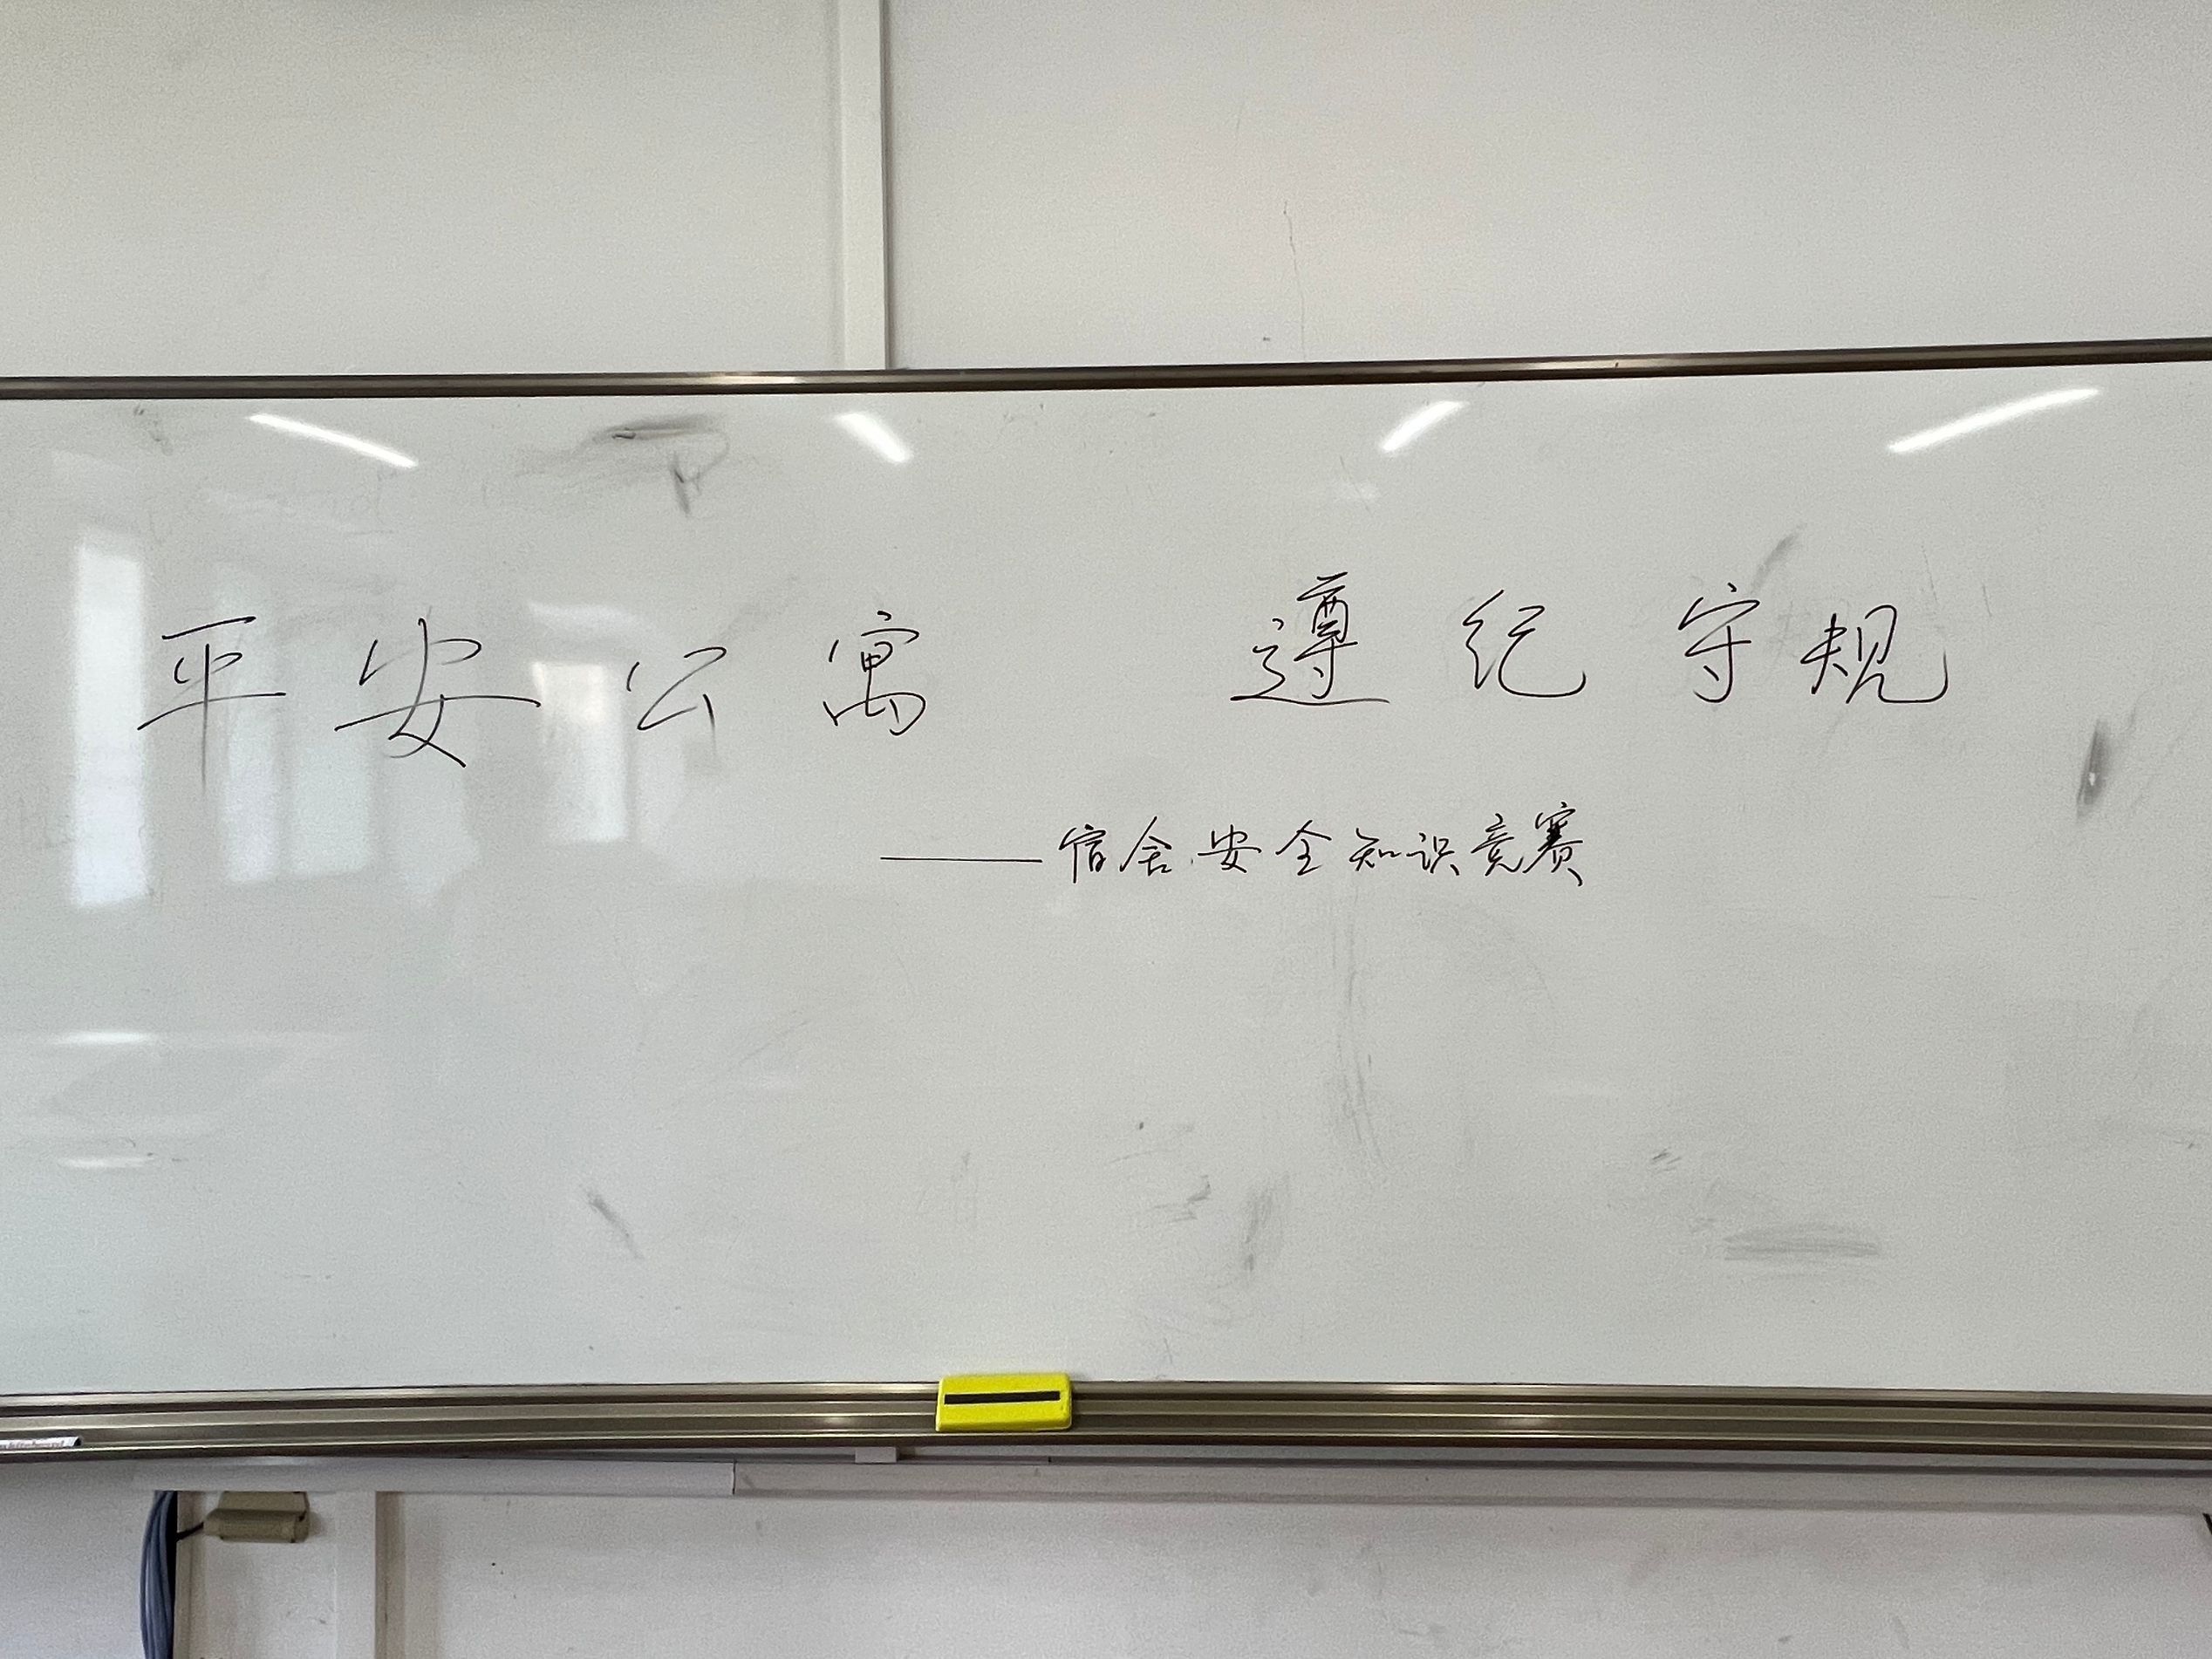 平安公寓 遵纪守规
——宿舍安全知识竞赛